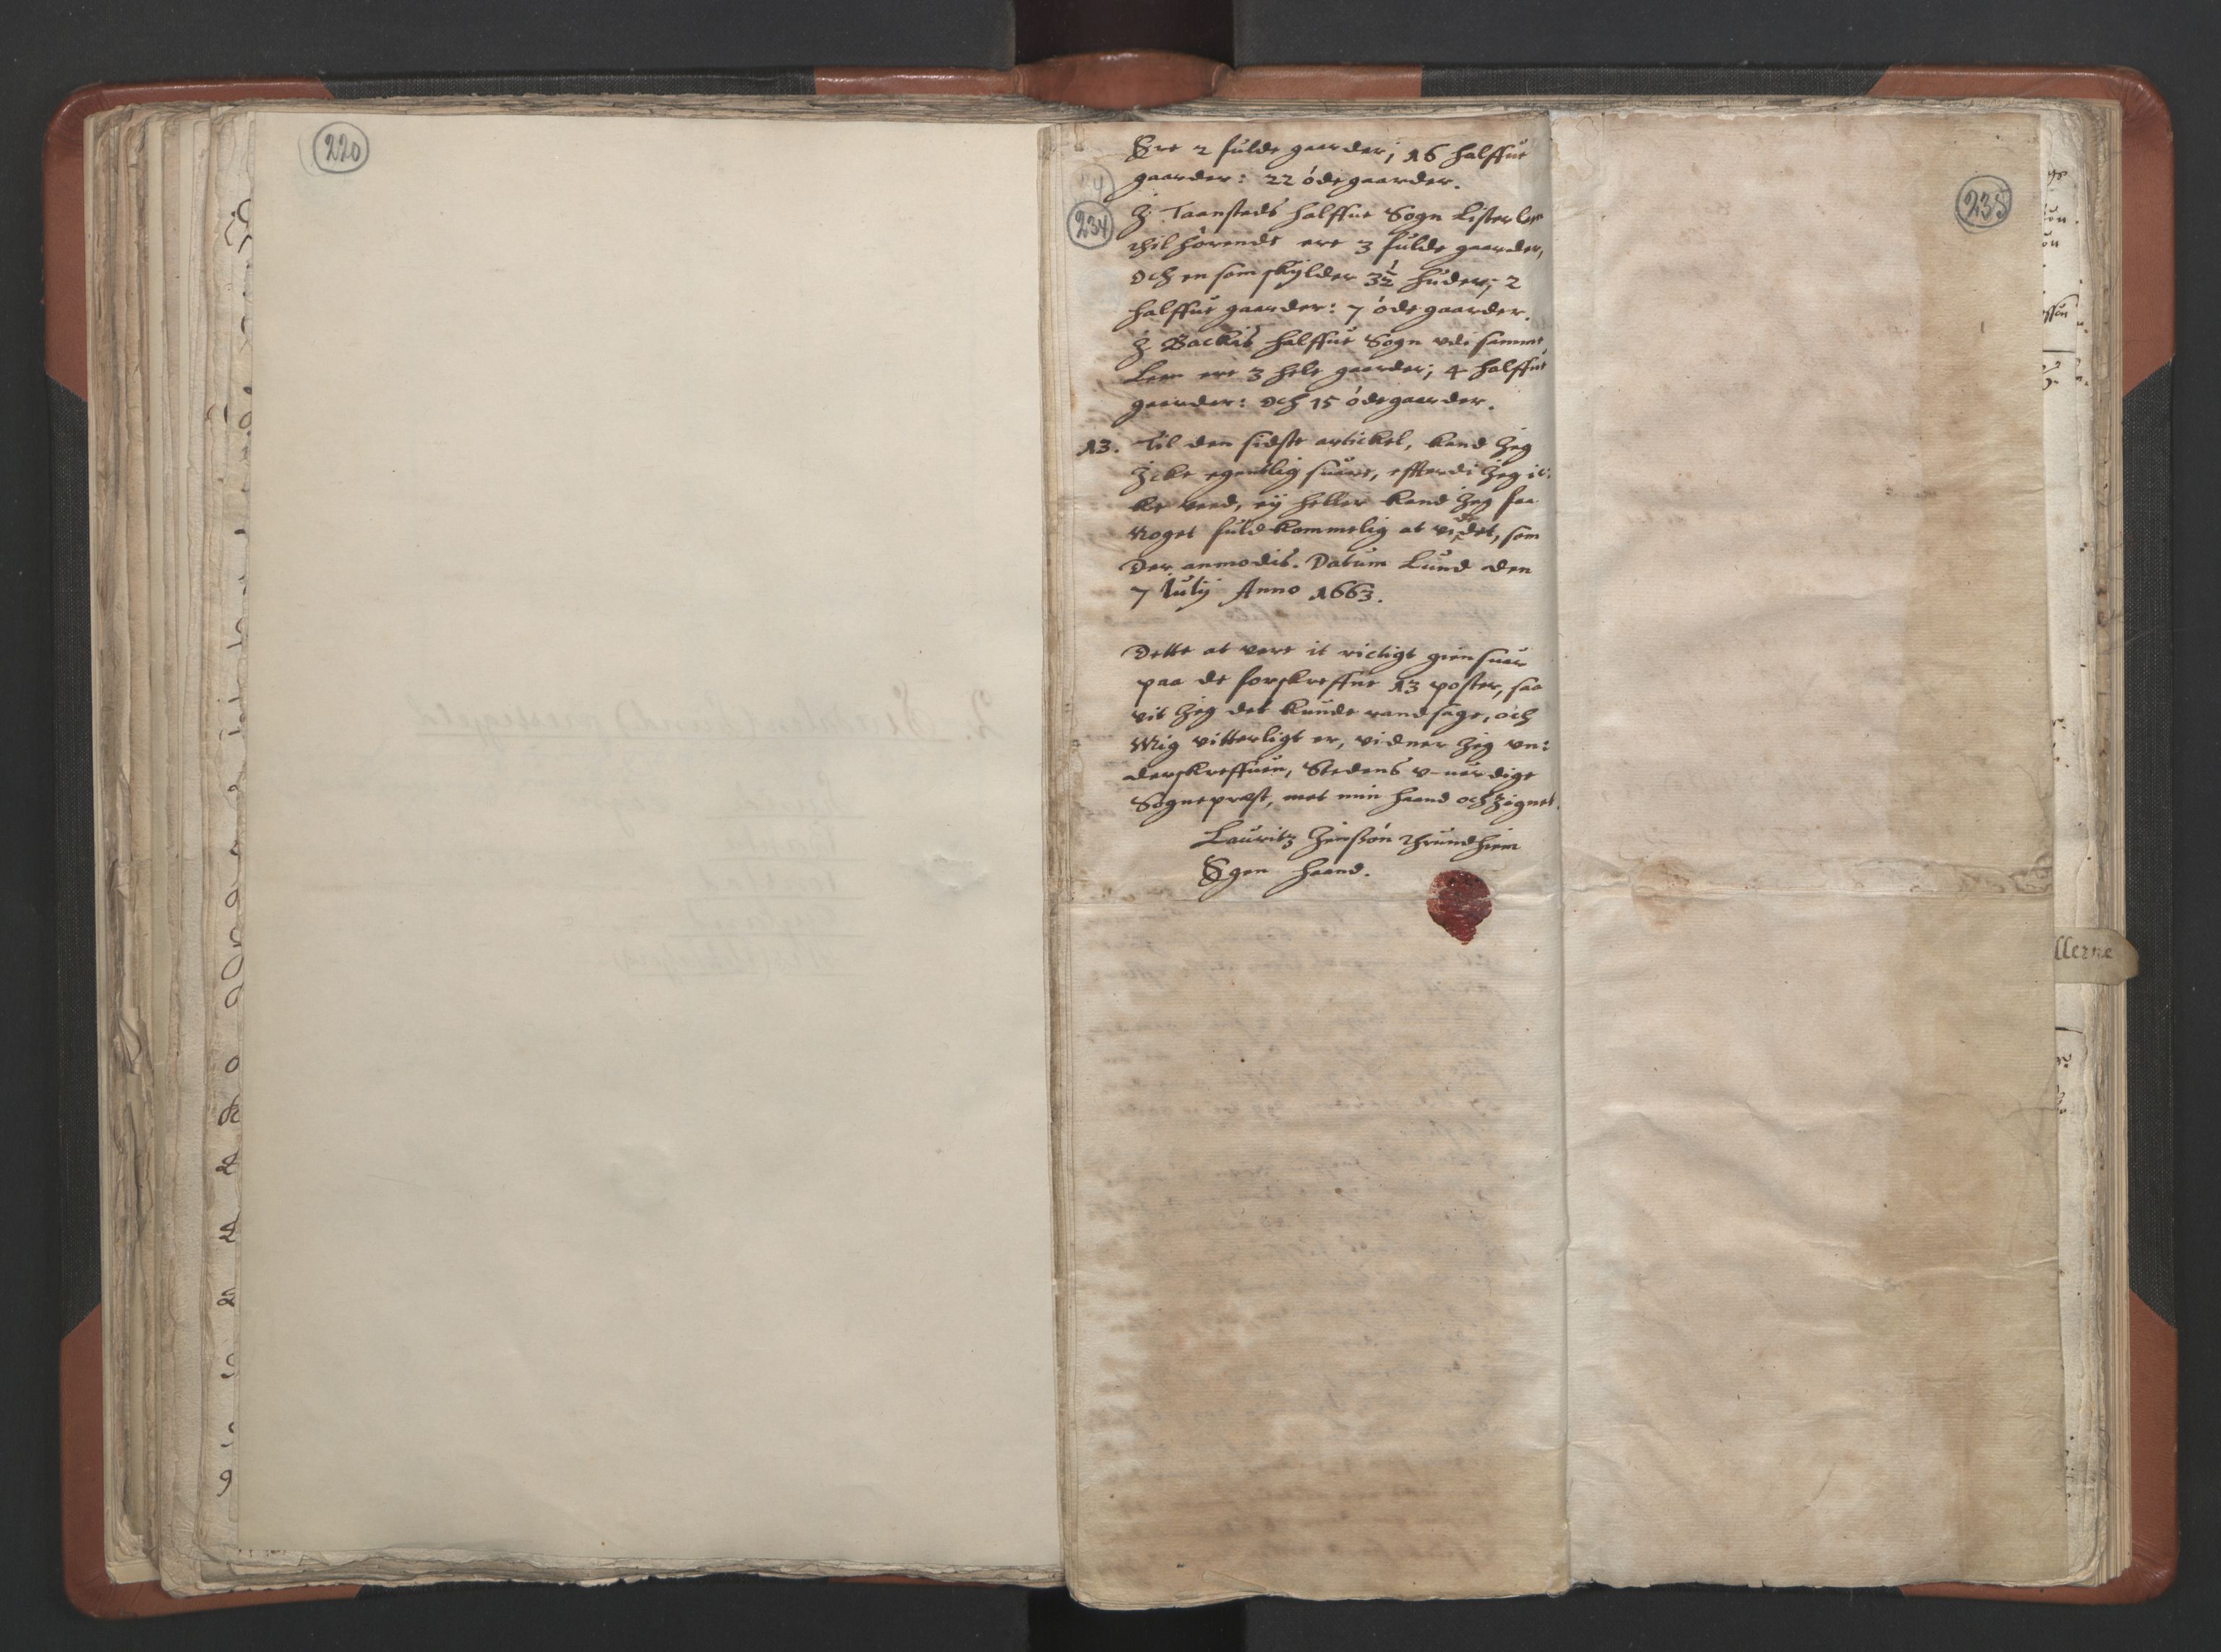 220
Ere 2 fulde gaarder; 16 halffue
gaarder: 22 ödegaarder.
234
J Taansteds halffue Sogn Lister Len
thilhörende ere 3 fulde gaarder,
Och en som skylder 3½ huder; 2
halffue gaarder: 7 ödegaarder.
J Backis halffue Sogn vdi samme
Leen ere 3 hele gaarder; 4 halffue
gaarder: Och 15 ödegaarder.
13. Til den sidste artickel, kand Jeg
Jcke egentlig suare, effterdi Jeg ic:
ke veed, ey heller kand Jeg faa
Noget fuldkommelig at videt, som
Der anmodis. Datum Lund den
7 Julij Anno 1663.
Dette at vere it rictigt giensuar
paa de forskreffne 13 poster, saa
vit Jeg det kunde randsage, och
Mig vitterligt er, vidner Jeg vn:
derskreffuen, Stedens v-uerdige
Sognepræst, met min haand och Zignet.
Lauritz Jenssön Thrundhiem
Egen haand.
235
llerne